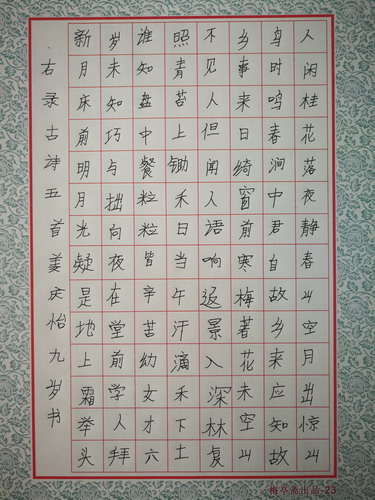 人闲桂花落夜静春山空月出惊山
鸟时鸣春涧中君自故乡来应知故
乡事来日绮窗前寒梅著花未空山
不见人但闻人语响返景入深林复
照青苔上锄禾日当午汗滴禾下土
谁知盘中餐粒粒皆辛苦幼女才六
岁未知巧与拙向夜在堂前学人拜
新月床前明月光疑是地上霜举头
右录古诗五首姜庆怡九岁书
斋出品-23